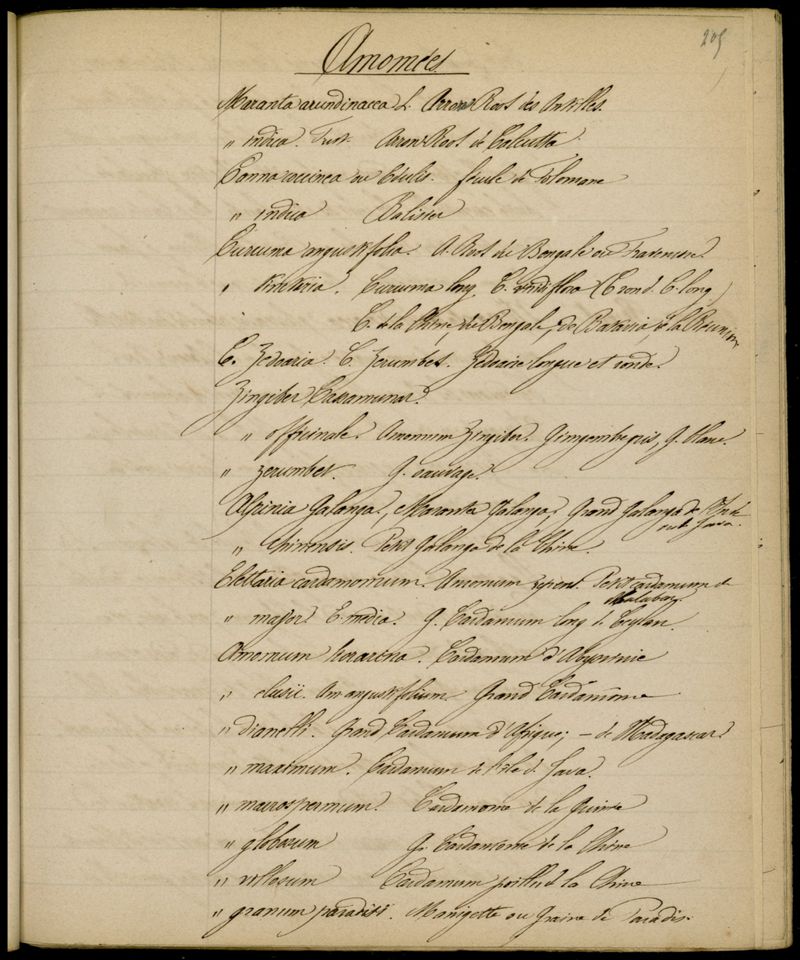 205
Amomées
Maranta arundinacea L. Arrow Root des Antilles.
" indica. Arrow Root de Calcutta
Canna coccinea ou Edulis. fecule de Tolomane
" indica Balisier
Curcuma angustifolia. A. Root du Bengale ou Travencore.
" tinctoria. Curcuma long C. viridiflora (C rond. C. long)
C. de la Chine, du Bengale, de Batavia, de la Réunion
C. Zedoaria. C. Zerumbet. Zédoaire longue et ronde.
Zingiber Cassamunar.
" officinale. Amomum Zingiber. Gingembre gris, G. blanc.
" zerumbet. G. sauvage.
Alpinia Galanga, Maranta Galanga, Grand Galanga de l'Inde
ou de Java.
" Chinensis. Petit Galanga de la Chine.
Elettaria cardamomum. Amomum repens. Petit cardamome de
Malabar.
" major. E. media. G. Cardamum long de Ceylan
Amomum korarima. Cardamum d'Abyssinie
" clusii. Am angustifolium. Grand Cardamome
" dianelli. Grand Cardamum d'Afrique; – de Madagascar
" maximum. Cardamum de l'Ile d. Java.
" macrospermum. Cardamome de la Guinée
" globosum G. Cardamome de la Chine
" villosum Cardamum poilu de la Chine
" granum paradisi. Maniguette ou Graine de Paradis.